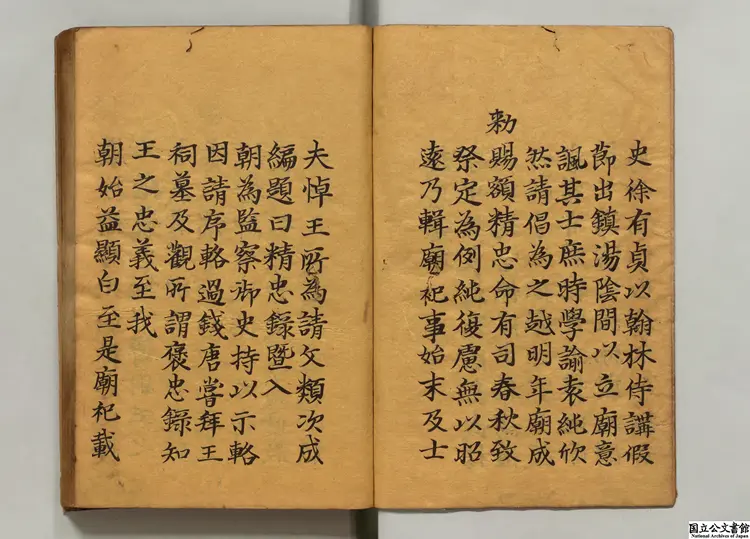 史徐有貞以翰林侍講假
節出鎮湯陰間以立廟意
諷其士庶時學諭袁純欣
然請倡為之越明年廟成
勑
賜額精忠命有司春秋致
祭定為例純復慮無以昭
遠乃輯廟祀事始末及士
夫悼王所為請文類次成
編題曰精忠錄暨入
朝為監察御史持以示輅
因請序輅過錢唐嘗拜王
祠墓及觀所謂褒忠錄知
王之忠義至我
朝始益顯白至是廟祀載
国立公文書館
National Archives of Japan